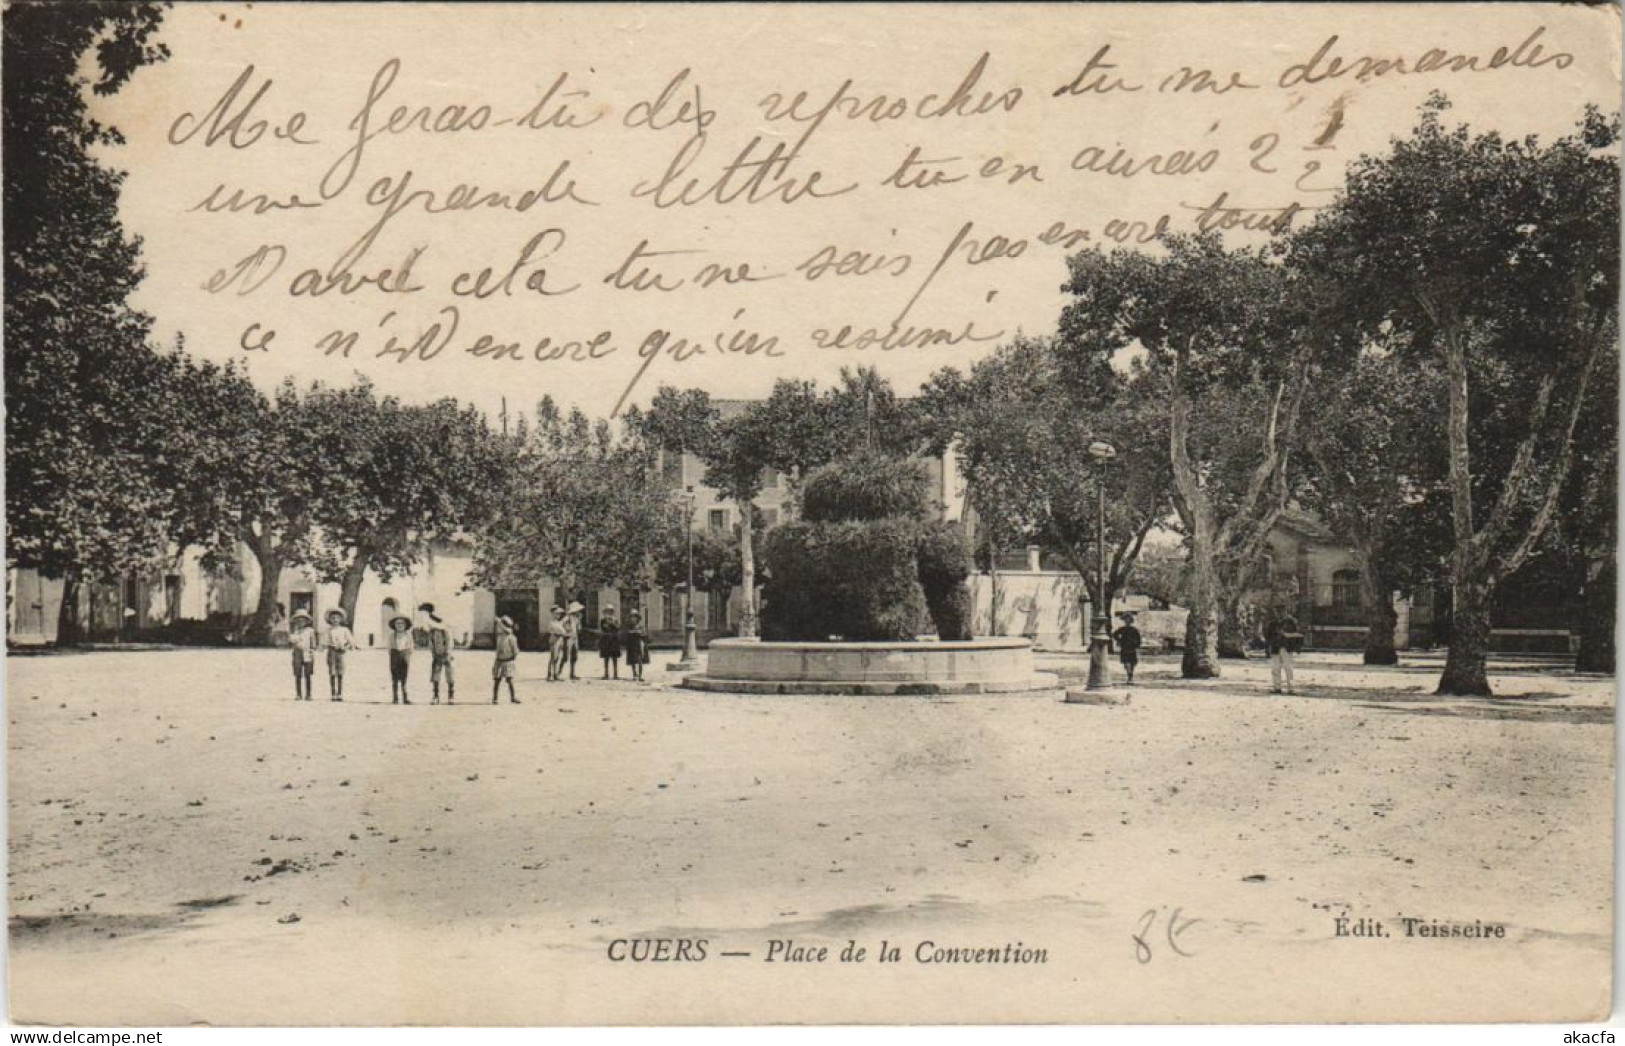 Me feras-tu des reproches tu me demandes
une grande lettre tu en aurais 2 1/2
Et avec cela tu ne sais pas encore tout
ce n'est encore qu'un resumé
CUERS — Place de la Convention
8€
Édit. Teisseire
delcampe.net
akacfa